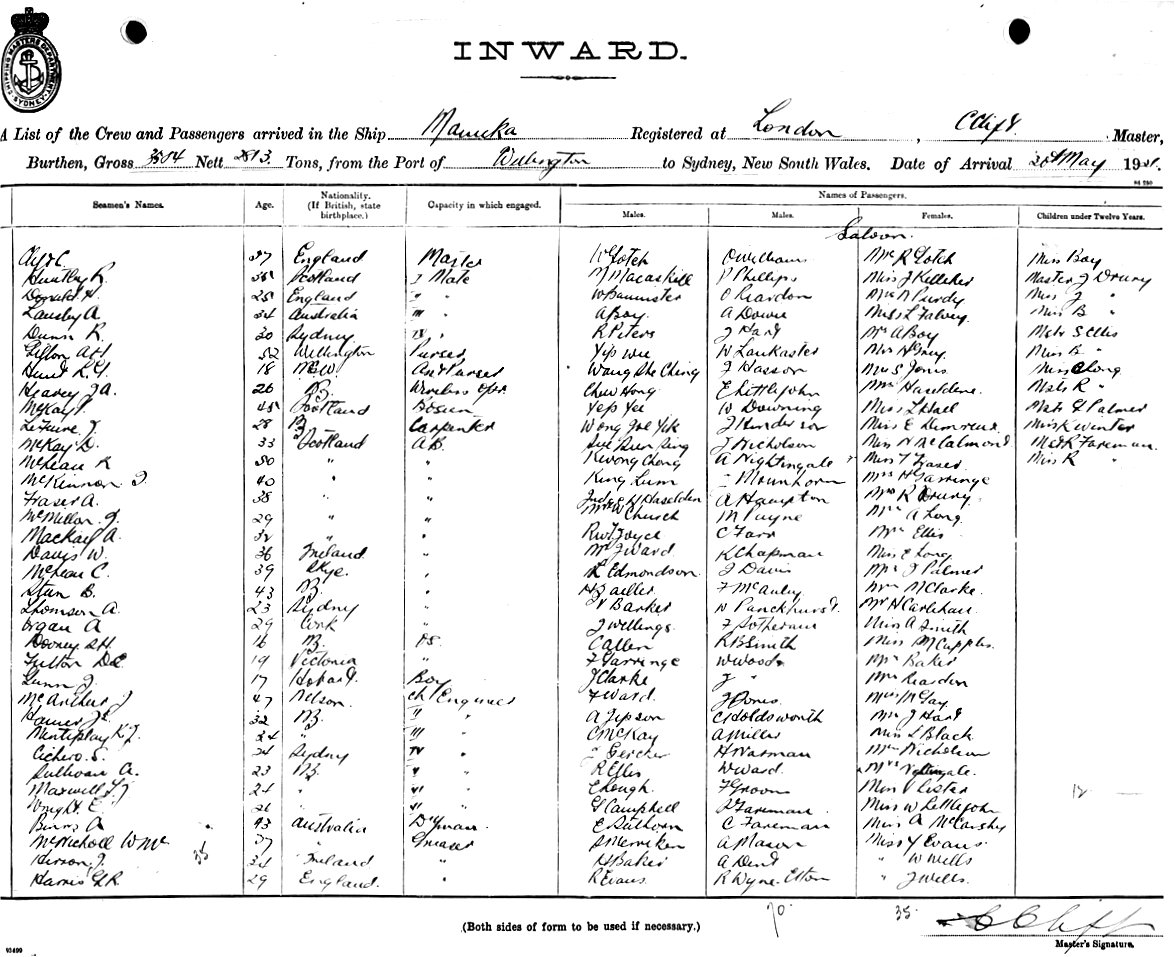 SHIPPING MASTERS DEPARTMENT SYDNEY
INWARD.
A List of the Crew and Passengers arrived in the Ship Manuka Registered at London , C Clift Master,
Burthen, Gross 3504 Nett Tons, from the Port of Wellington to Sydney, New South Wales. Date of Arrival May 19
94 280
Seamen's Names. Age. Nationality. (If British, state birthplace.) Capacity in which engaged. Names of Passengers.
Males. Males. Females. Children under Twelve Years.
Saloon
Clift C. 37 England Master W Gotch O Williams Mrs R Gotch Miss Boy
Huntley R. Scotland Mate M Macaskill P Phillips Miss J Kelleher Master J Drury
Donald 25 England " " W Bannister O Reardon Mrs A Purdy Miss J "
Lansby A 34 Australia III " A Boy A Dowie Miss L Falvey Miss B "
Dunn R. 30 Sydney IV " R Peters J Hart Mrs A Boy Mstr S Ellis
52 Wellington Purser Yip Wee W Lankaster Mrs H Grey Miss B "
Hunt 18 NSW Ast Purser Wang She Ching J Hasson Mrs S Jones Miss C Long
Heavey J A. 26 NZ. Wireless Opr. Chew Hong E Littlejohn Mrs Haseldene Mstr R "
McKay 45 Scotland Bosun Yep Yee W Downing Miss L Hall Mstr G Palmer
28 NZ Carpenter Wong Joe Yik J Hunderson Miss E Miss K Winter
McKay D. 33 Scotland A.B. J Nicholson Miss N McCalmond Mstr R Fareman
McLean R 50 " " Kwong Chong A Nightingale Miss T Fraser Miss R "
McKinnon 40 " " King Lum Mounhorn Mrs H Garringe
Fraser A. 38 " " Judge H Haselden A Hampton Mrs R Drury
McMillan J. 29 " " Mr W Church M Payne Mrs A Long
Mackay A. 32 " " R W Joyce C Farr Mrs Ellis
Davis W. 36 Ireland " Mr J Ward K Chapman Miss E Long
McLean C. 39 Skye. " L Edmondson J Davis Mrs J Palmer
B. 43 NZ. " H F McAuley Mrs M Clarke.
Thomson A. 23 Sydney " Barker W Panckhurst. Mrs H Carlehan
Organ A 29 Cork " J Wellings F Sotheran Miss A Smith
Rooney 16 NZ. O.S. C Allen R B Smith Miss M Cupples
Fulton D.C. 19 Victoria " F Garringe W Woods Mrs Baker
Gunn J. 17 Hobart. Boy J Clarke J " Mrs Reardon
McArthur J 47 Nelson. Ch Engineer F Ward. J Jones. Miss McGay
32 NZ. II " A Jepson C Holdsworth Mrs J Hart
24 " III " C McKay A Miller Miss L Black
Cichero S. 24 Sydney IV " Gercher H Wasman Mrs Nicholson
Sullivan A. 23 NZ. V " R Ellis W Ward. Mrs Nightingale.
Maxwell 24 " VI " E Keugh. F Groom Miss V Lister 12 —
Wright E. 26 " VI " G Campbell Fareman Miss W Littlejohn
Binns A " 43 Australia D'yman E Suthorn C Fareman Miss A McCarthy
McNicholl W Mc 35 37 " Greaser S Merriken A Mason Miss Y Evans
Hirson J. 34 Ireland " H Baker A Dent " W Wells
Harris G R. 29 England. " R Evans. R Wyne Elton " J Wells.
70. 35. C Clift
(Both sides of form to be used if necessary.)
Master's Signature.
93499